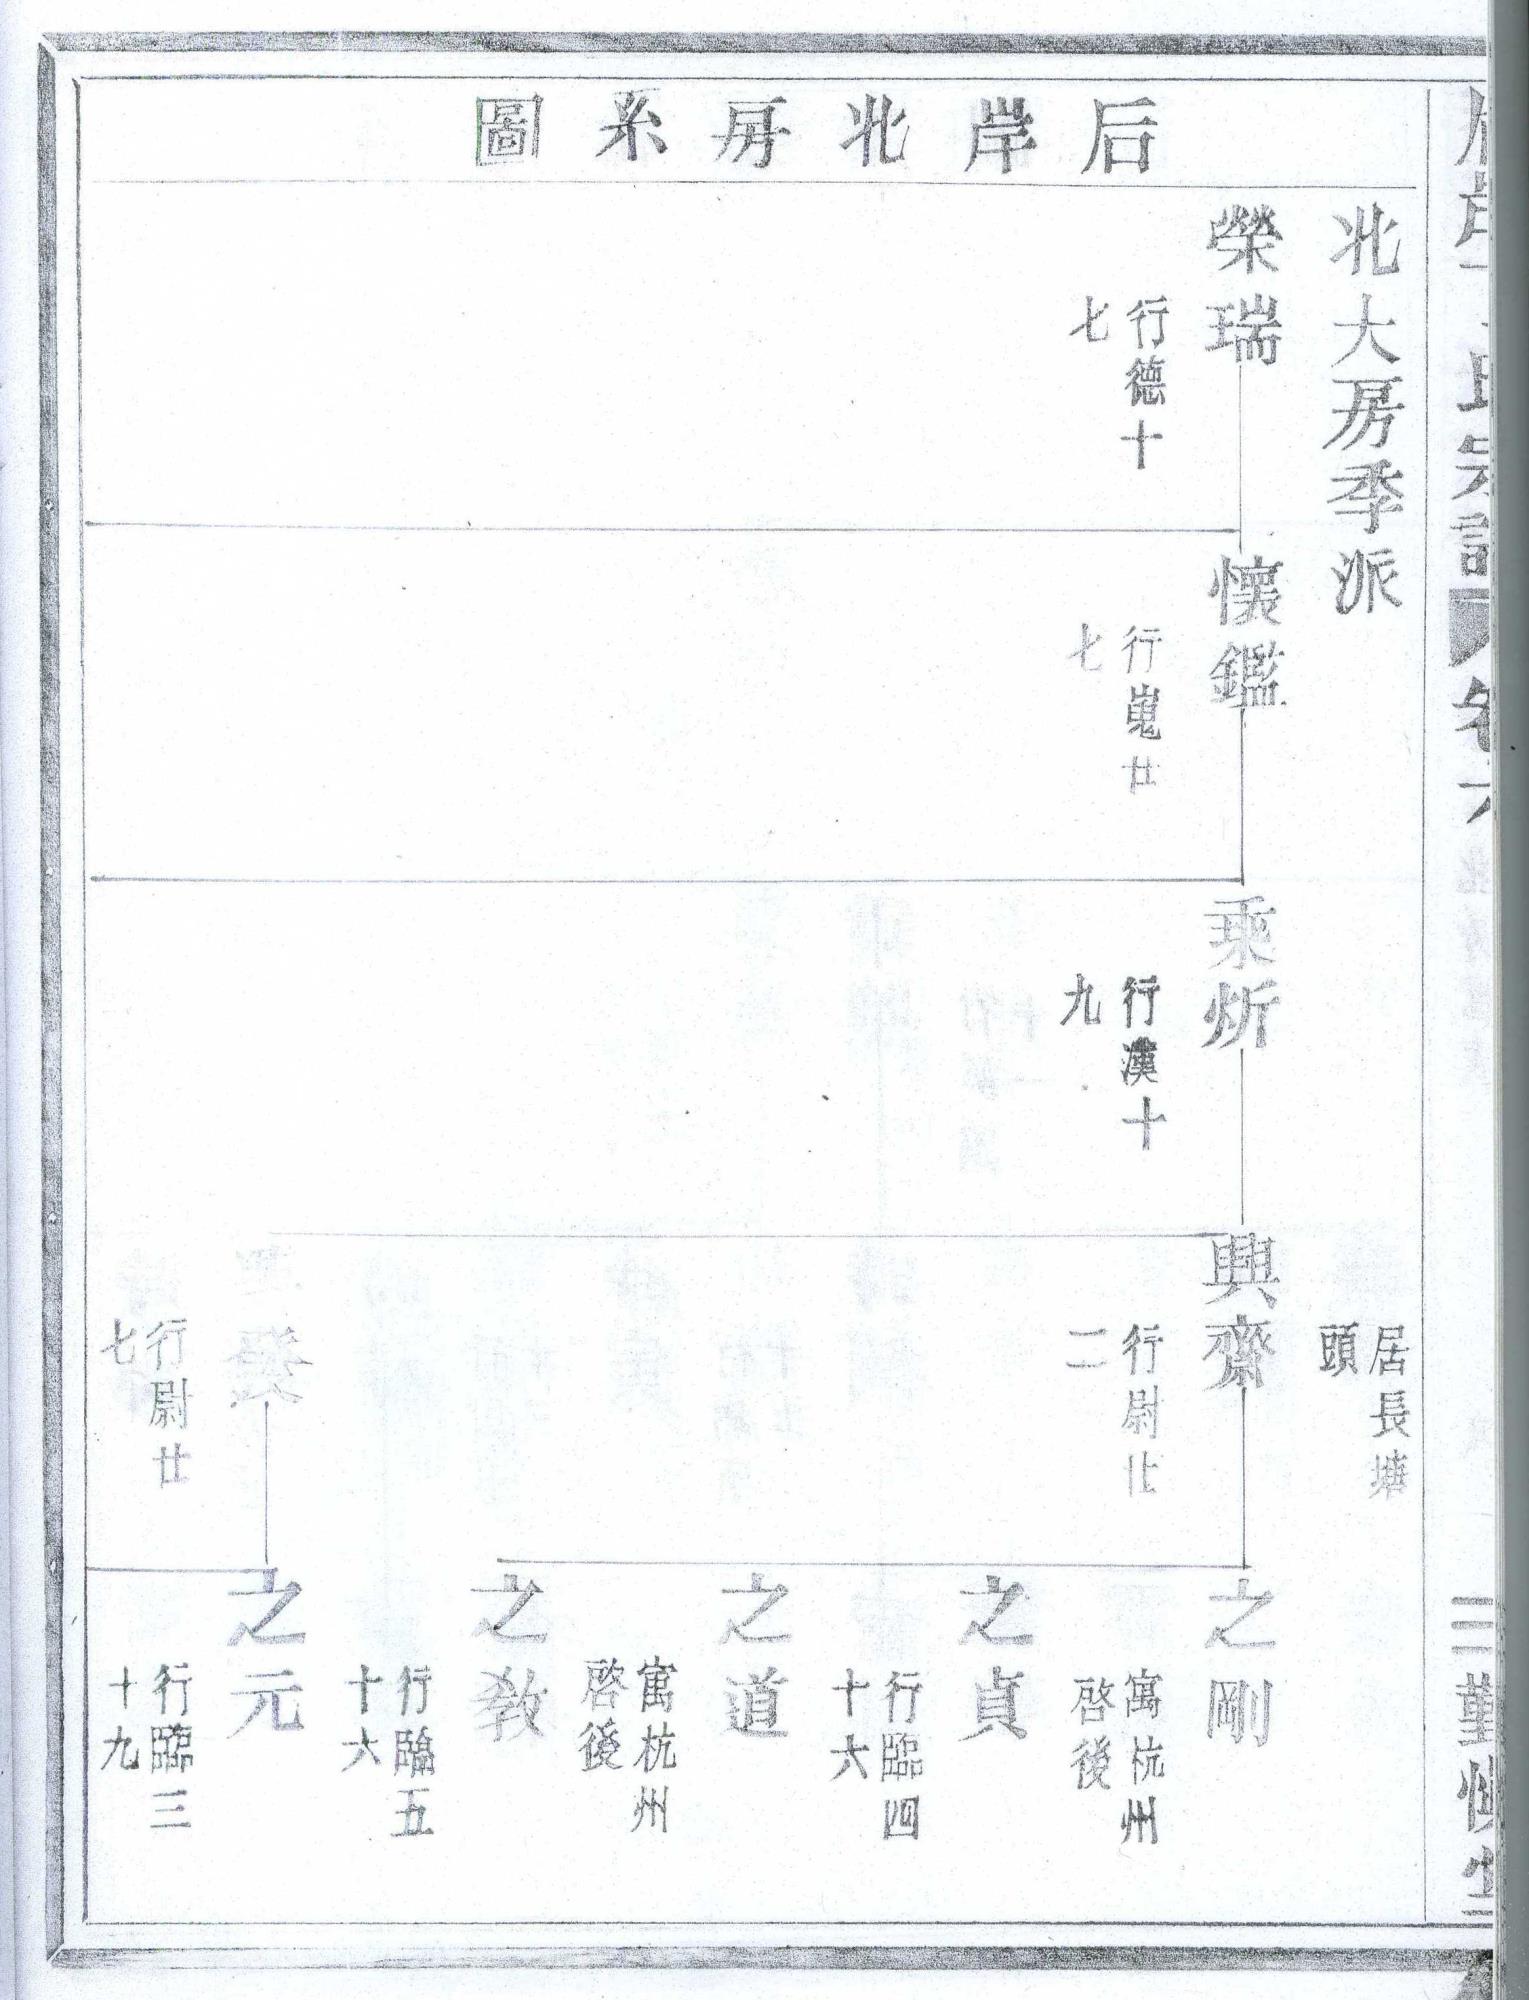 后岸北房系圖
北大房季派
居長塘
頭
榮瑞
行德十
七
懷鑑
行嵬廿
七
乘炘
行漢十
九
興齋
行尉廿
二
行尉廿
七
之剛
寓杭州
啓後
之貞
行臨四
十六
之道
寓杭州
啓後
之敎
行臨五
十六
之元
行臨三
十九
氏宗譜
卷六
三勤慎堂